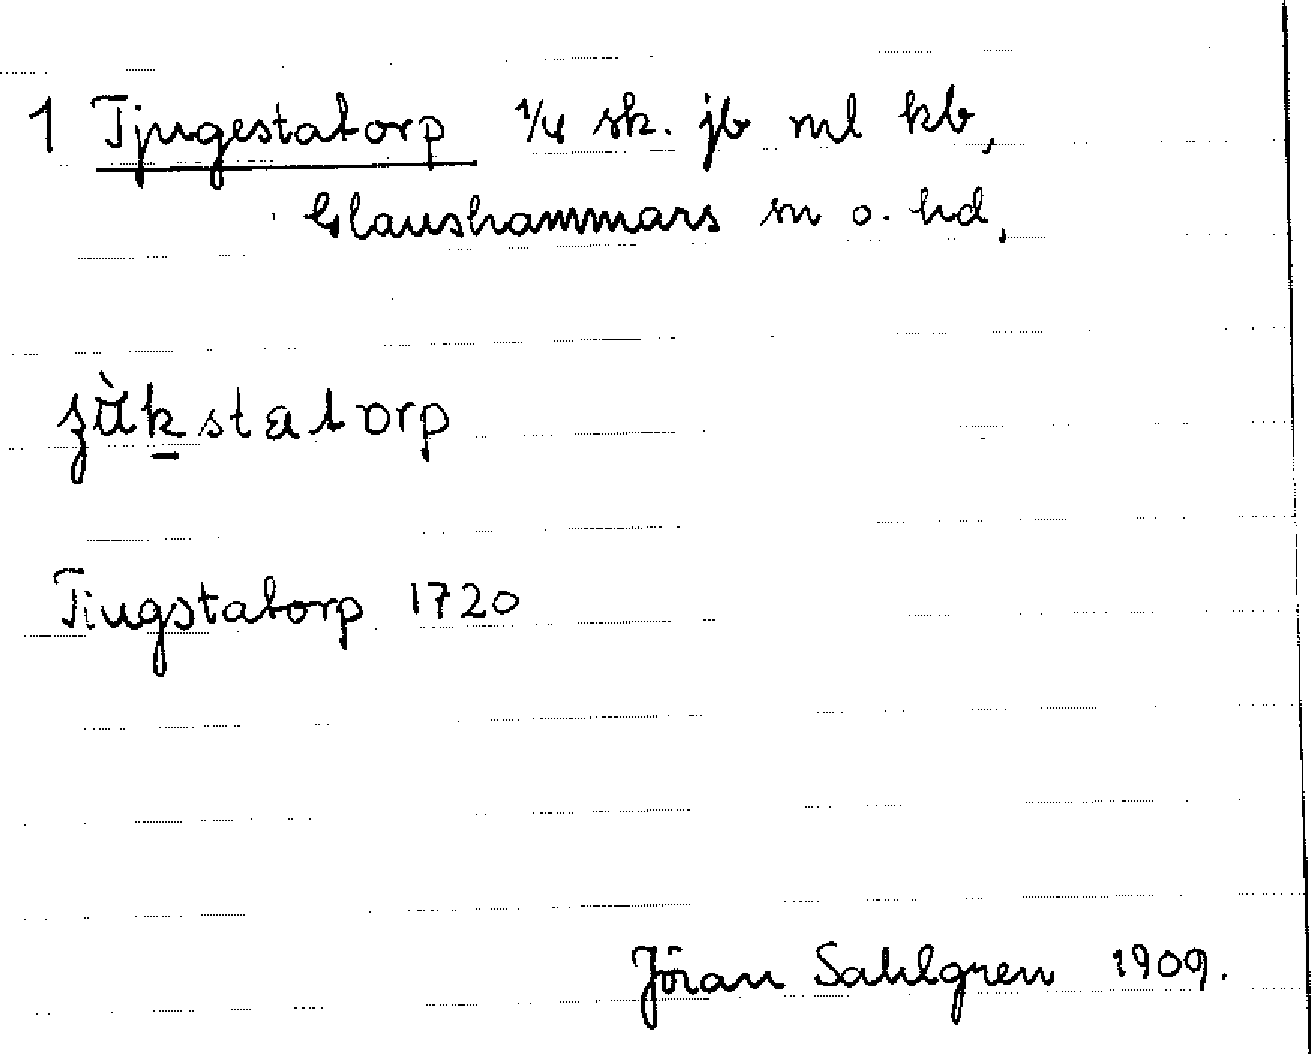 1 Tjugestatorp 1/4 sk. jb ml kb,
Glanshammars sn o. hd,
Tiugstatorp 1720
Jöran Sahlgren 1909.